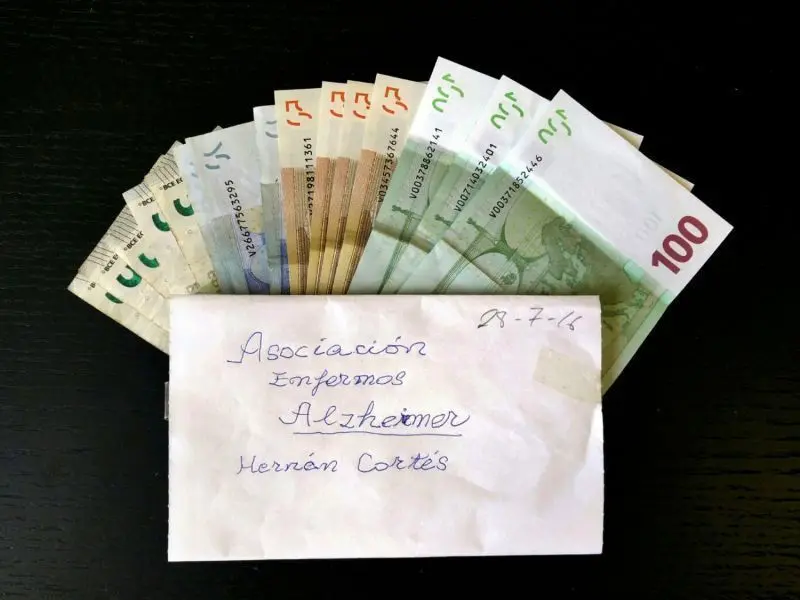 BCE EC
BCE E
V26677563295
V03457367644
V00378862141
V00714032401
V00371852446
100
28-7-16
Asociación
Enfermos
Alzheimer
Hernán Cortés